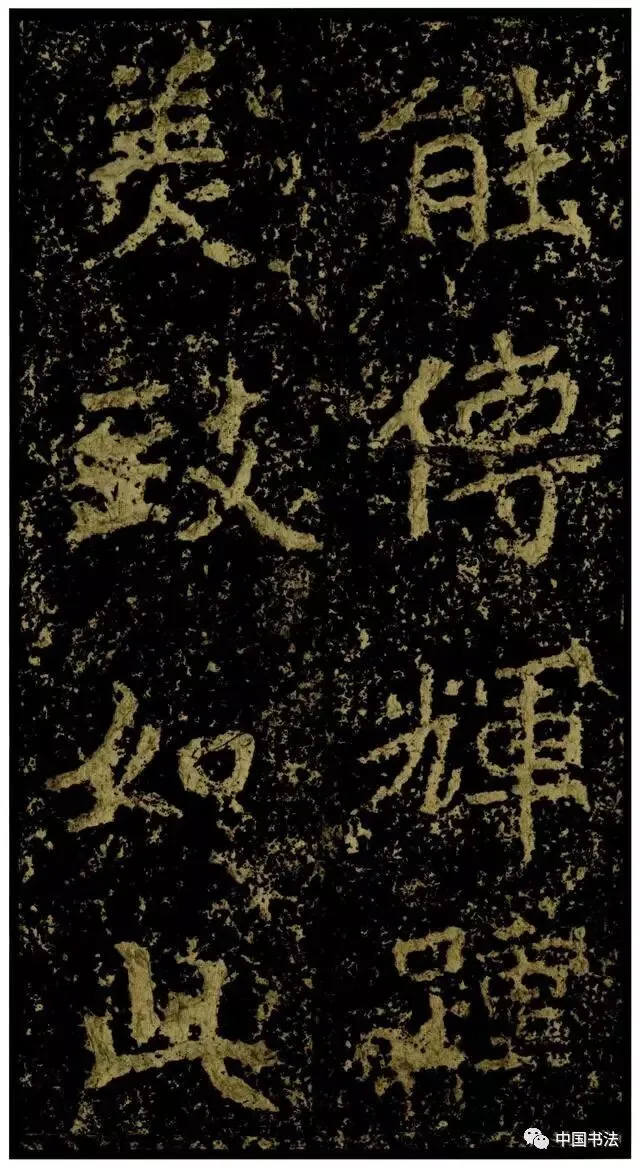 能傳輝踵
美致如此
中国书法